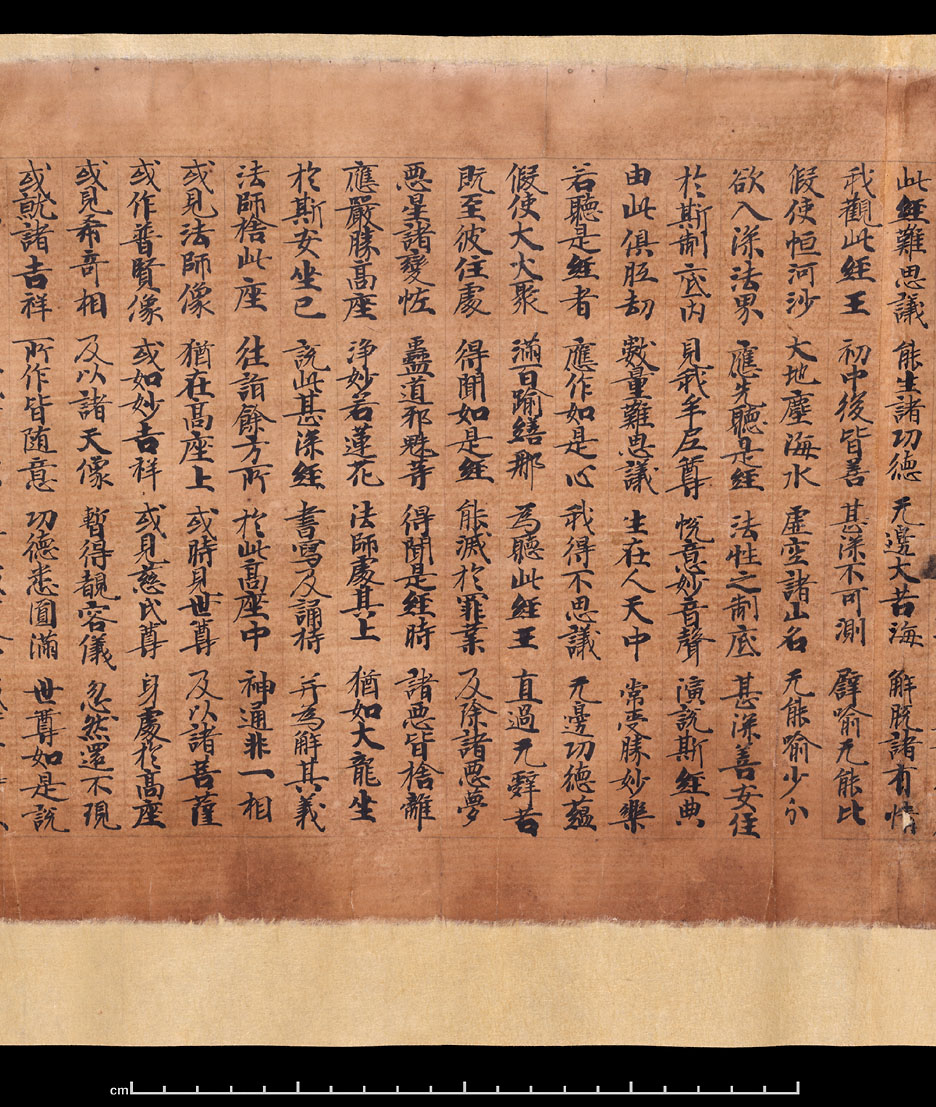 此經難思議 能生諸功德 无邊大苦海 解脫諸有情
我觀此經王 初中後皆善 甚深不可測 譬喻无能比
假使恒河沙 大地塵海水 虛空諸山石 无能喻少分
欲入深法界 應先聽是經 法性之制底 甚深善安住
於斯制底內 見我牟尼尊 悅意妙音聲 演說斯經典
由此俱胝劫 數量難思議 生在人天中 常受勝妙樂
若聽是經者 應作如是心 我得不思議 无邊功德蘊
假使大火聚 滿百踰繕那 為聽此經王 直過无辭苦
既至彼住處 得聞如是經 能滅於罪業 及除諸惡夢
惡星諸變怪 蠱道邪魅等 得聞是經時 諸惡皆捨離
應嚴勝高座 淨妙若蓮花 法師處其上 猶如大龍坐
於斯安坐已 說此甚深經 書寫及誦持 并為解其義
法師捨此座 往詣餘方所 於此高座中 神通非一相
或見法師像 猶在高座上 或時見世尊 及以諸菩薩
或作普賢像 或如妙吉祥 或見慈氏尊 身處於高座
或見希奇相 及以諸天像 暫得覩容儀 忽然還不現
或說諸吉祥 所作皆隨意 功德悉圓滿 世尊如是說